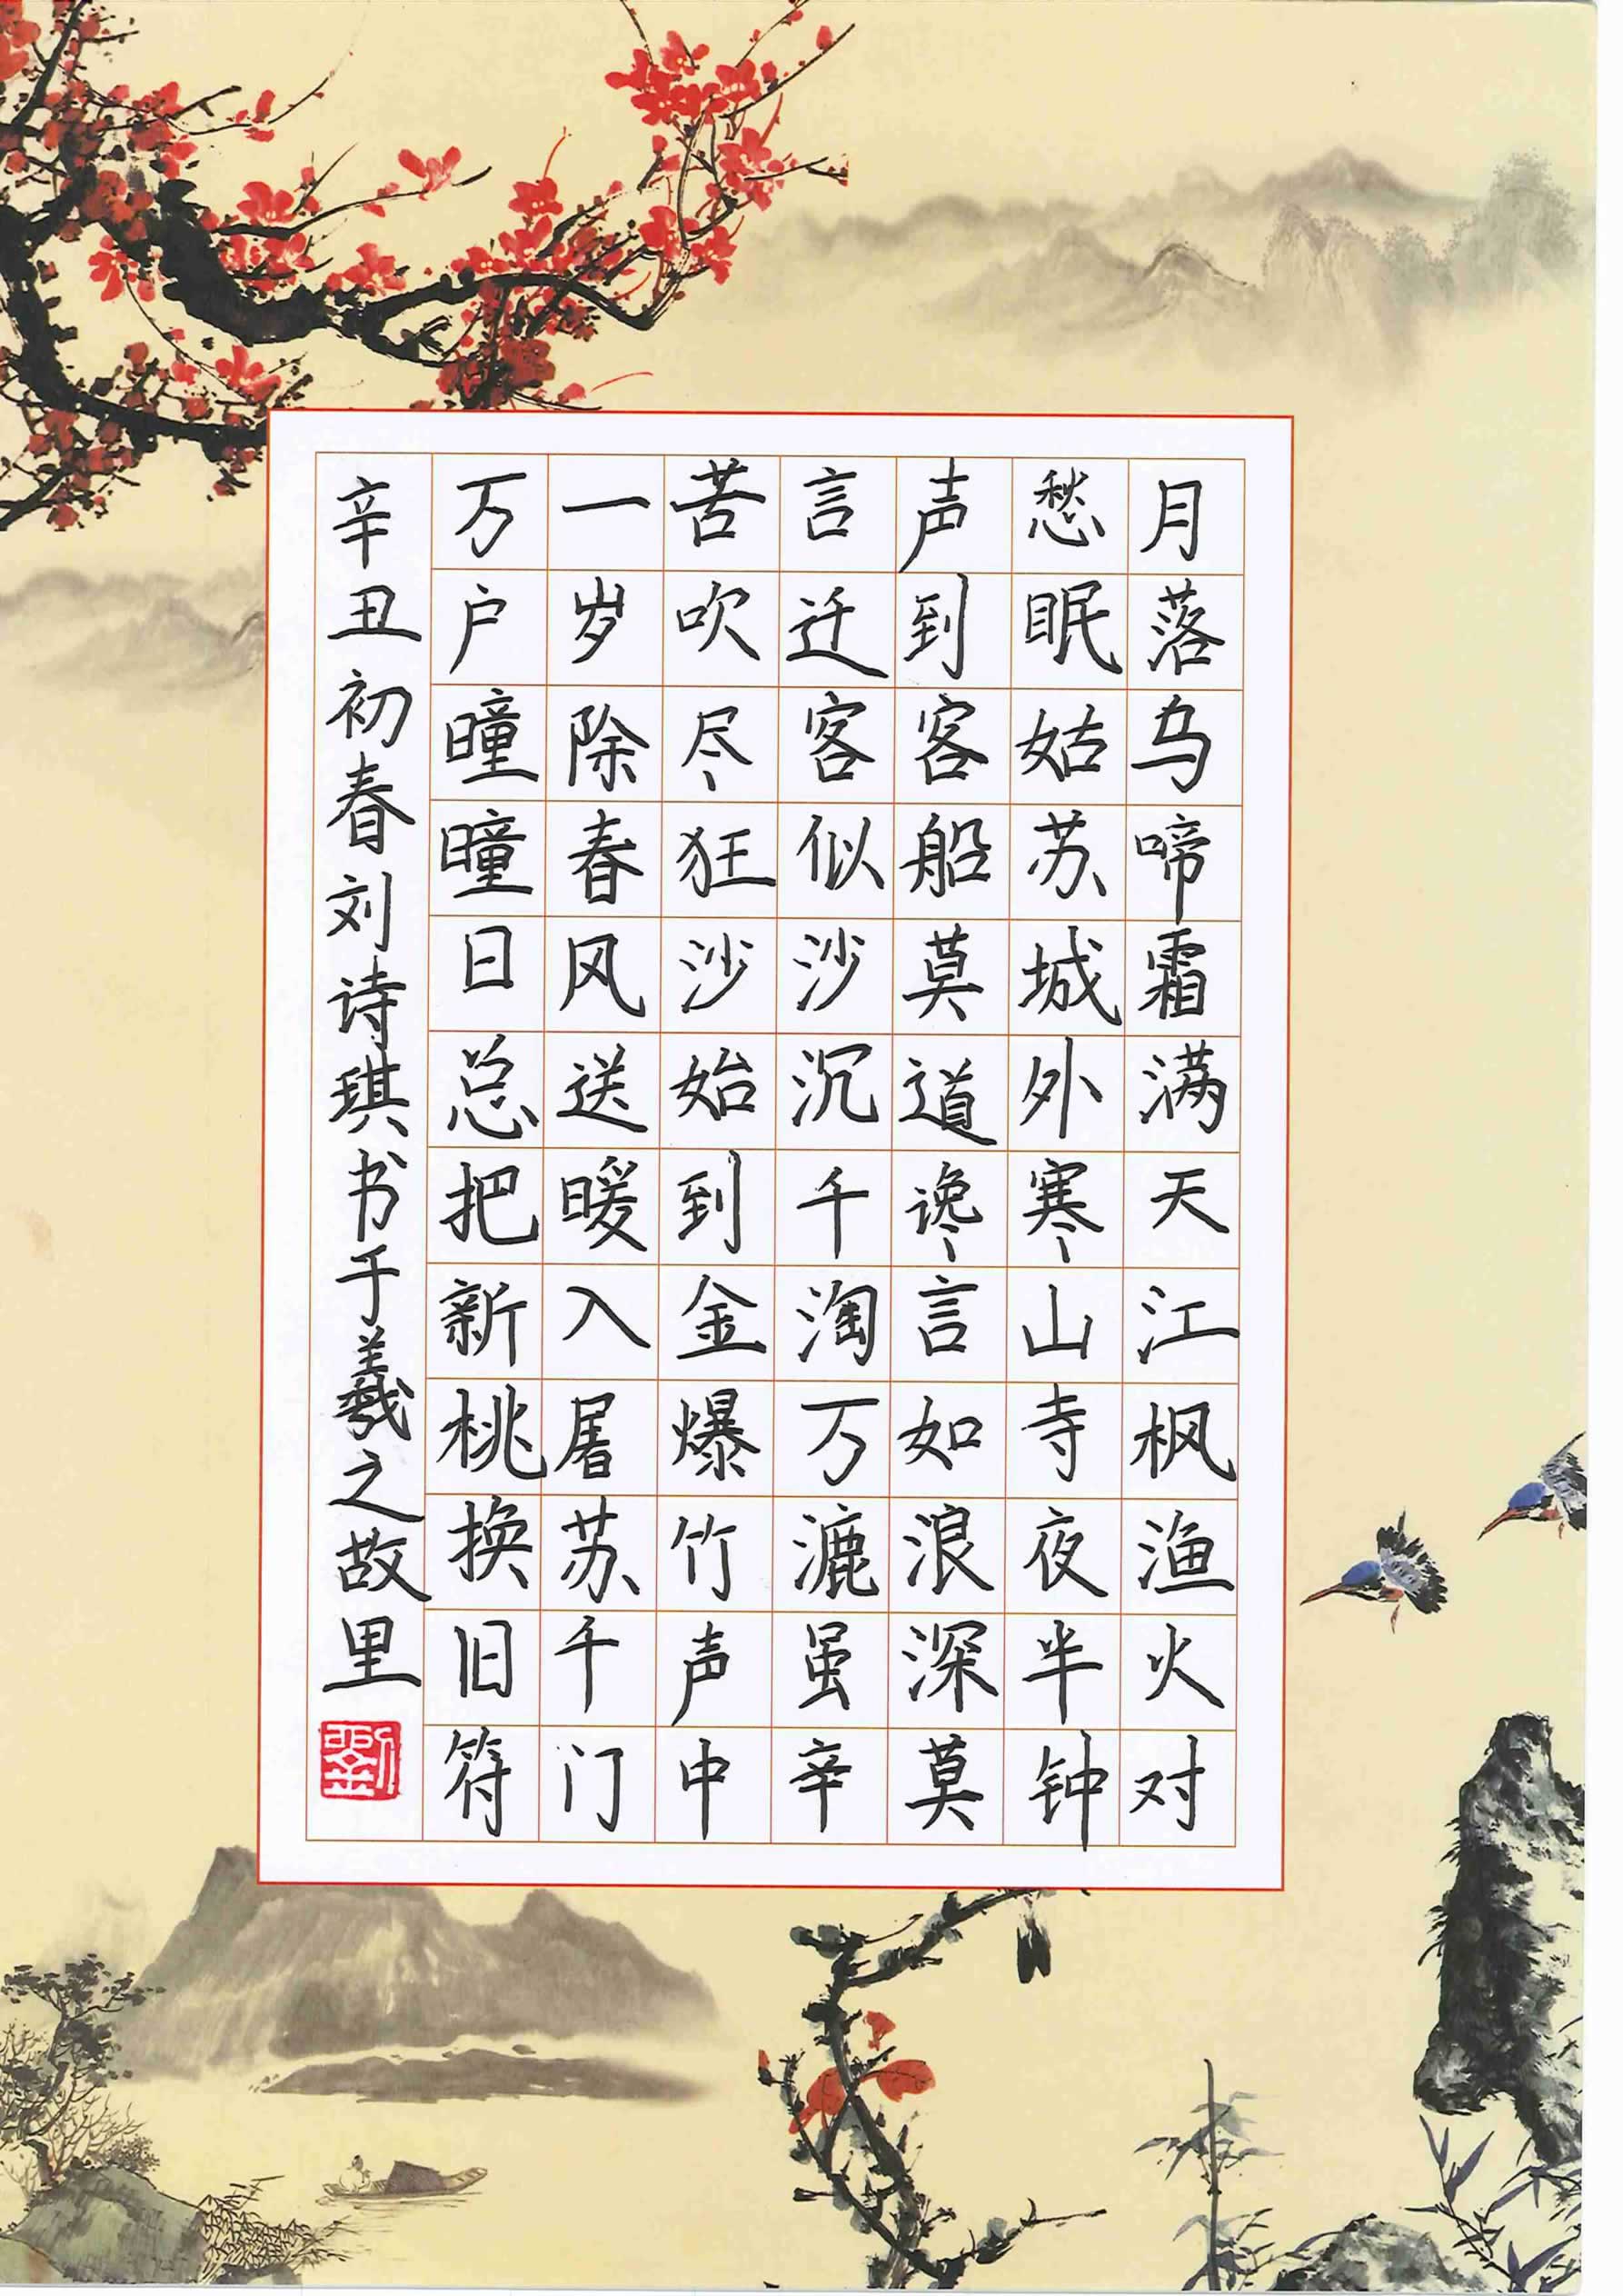 月落乌啼霜满天江枫渔火对
愁眠姑苏城外寒山寺夜半钟
声到客船莫道谗言如浪深莫
言迁客似沙沉千淘万漉虽辛
苦吹尽狂沙始到金爆竹声中
一岁除春风送暖入屠苏千门
万户曈曈日总把新桃换旧符
辛丑初春刘诗琪书于羲之故里
劉